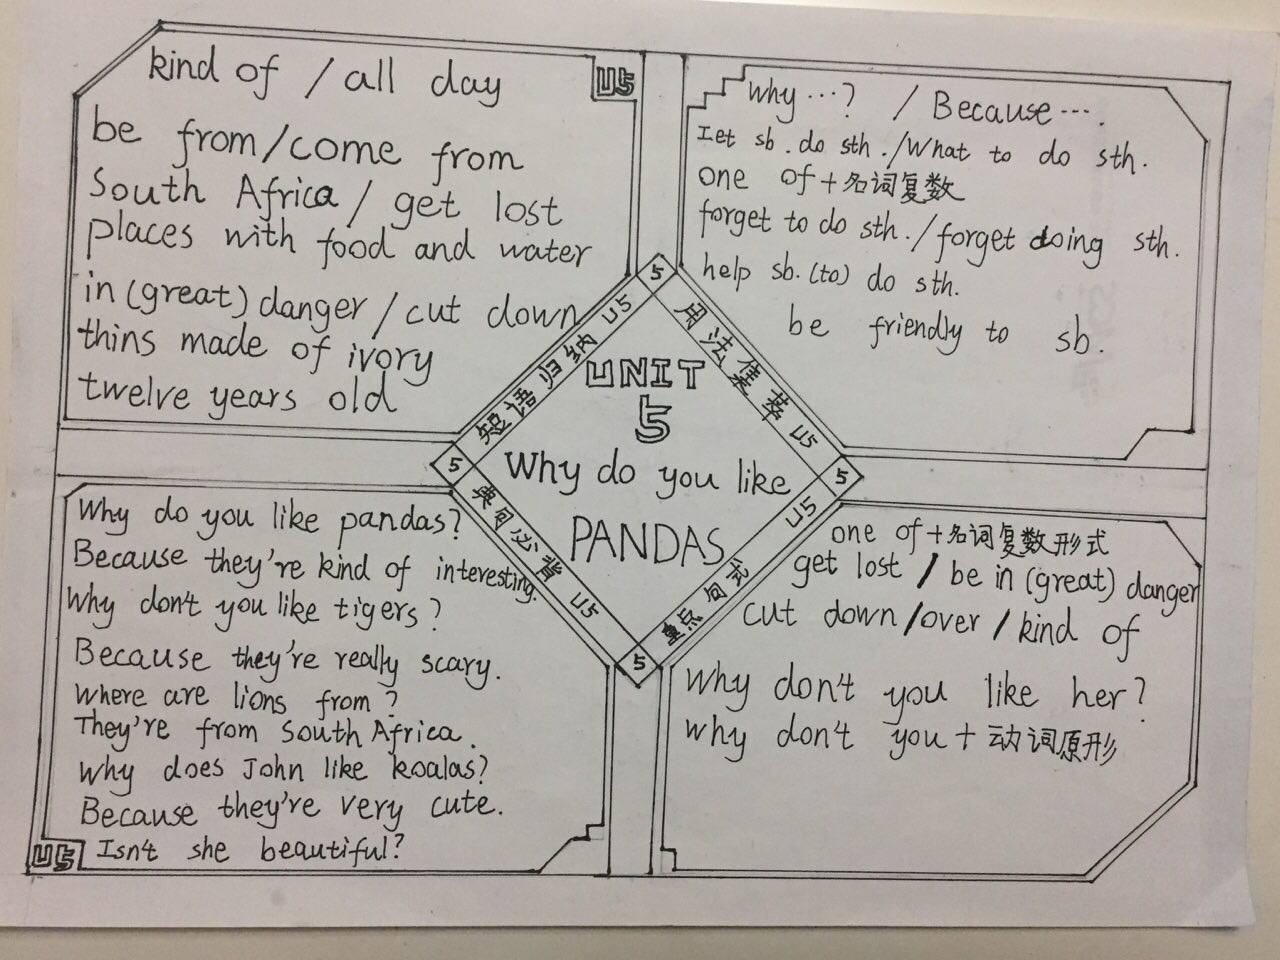 kind of / all day
U5
be from/come from
South Africa / get lost
places with food and water
in (great) danger / cut down
thins made of ivory
twelve years old
Why ...? / Because ....
Let sb. do sth. / What to do sth.
one of + 名词复数
forget to do sth. / forget doing sth.
help sb. (to) do sth.
be friendly to sb.
5
短语归纳 U5
用法集萃 U5
UNIT
5
Why do you like
PANDAS
5
5
典句必背 U5
重点句式 U5
5
Why do you like pandas?
Because they're kind of interesting.
Why don't you like tigers?
Because they're really scary.
Where are lions from?
They're from South Africa.
Why does John like koalas?
Because they're very cute.
U5
Isn't she beautiful?
one of + 名词复数形式
get lost / be in (great) danger
cut down/over / kind of
Why don't you like her?
Why don't you + 动词原形